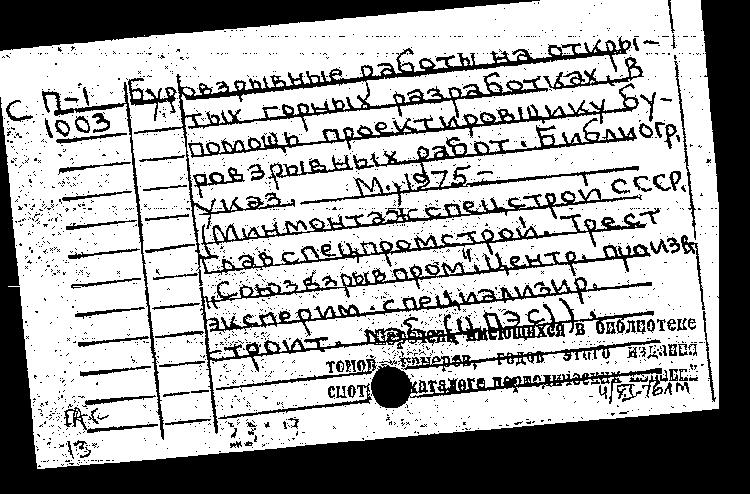 Буровзрывные работы на откры-
С П-1
1003
тых горных разработках. В
помощь проектировщику бу-
ровзрывных работ. Библиогр.
указ. М., 1975-
(Минмонтажспецстрой СССР.
Главспецпромстрой. Трест
"Союзвзрывпром". Центр. произв.
эксперим. специализир.
строит. лаб. (ЦПЭС)).
Перечень имеющихся в библиотеке
томов, номеров, годов этого издания
смотри каталоге периодических изданий
4/XI-76
13